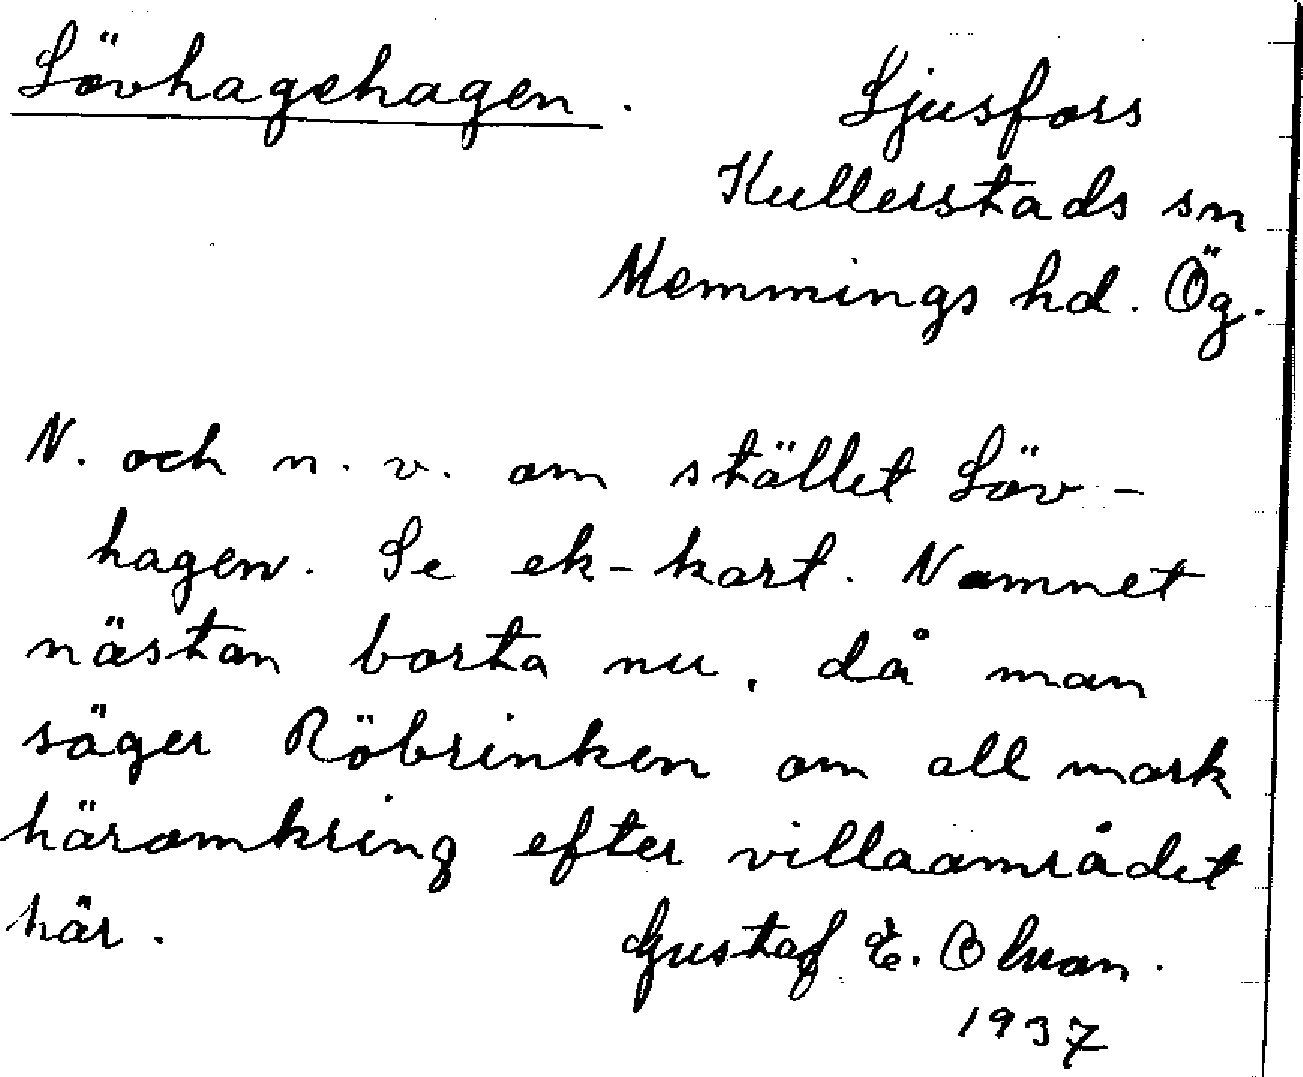 Lövhagehagen.
Ljusfors
Kullerstads sn
Memmings hd. Ög.
N. och n. v. om stället Löv-
hagen. Se ek-kart. Namnet
nästan borta nu, då man
säger Röbrinken om all mark
häromkring efter villaområdet
här.
Gustaf E. Olsson.
1937